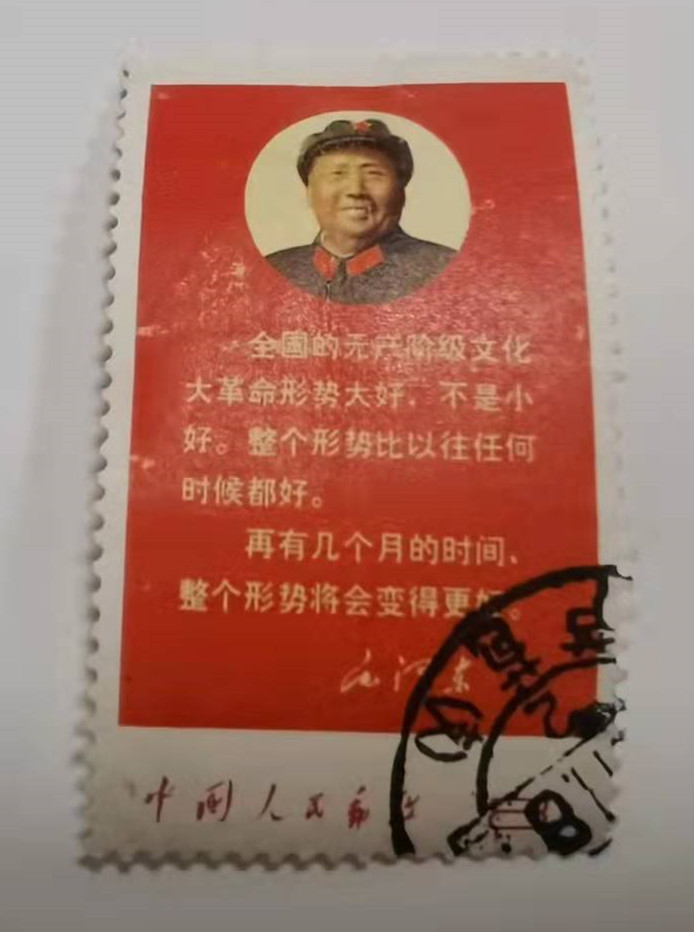 全國的无产阶级文化
大革命形势大好，不是小
好。整个形势比以往任何
时候都好。
再有几个月的时间，
整个形势将会变得更好。
毛泽东
中国人民邮